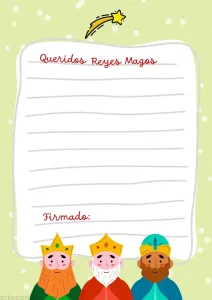 Queridos Reyes Magos
Firmado: